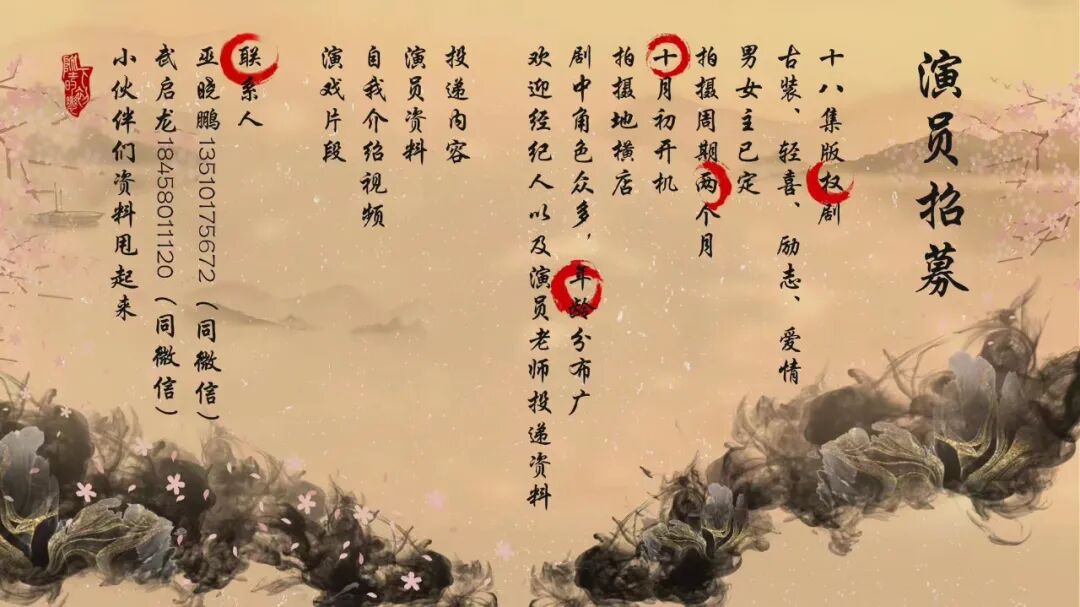 演员招募
十八集版权剧
古装、轻喜、励志、爱情
男女主已定
拍摄周期两个月
十月初开机
拍摄地横店
剧中角色众多，年龄分布广
欢迎经纪人以及演员老师投递资料
投递内容
演员资料
自我介绍视频
演戏片段
联系人
巫晓鹏13510175672（同微信）
武启龙18458011120（同微信）
小伙伴们资料甩起来